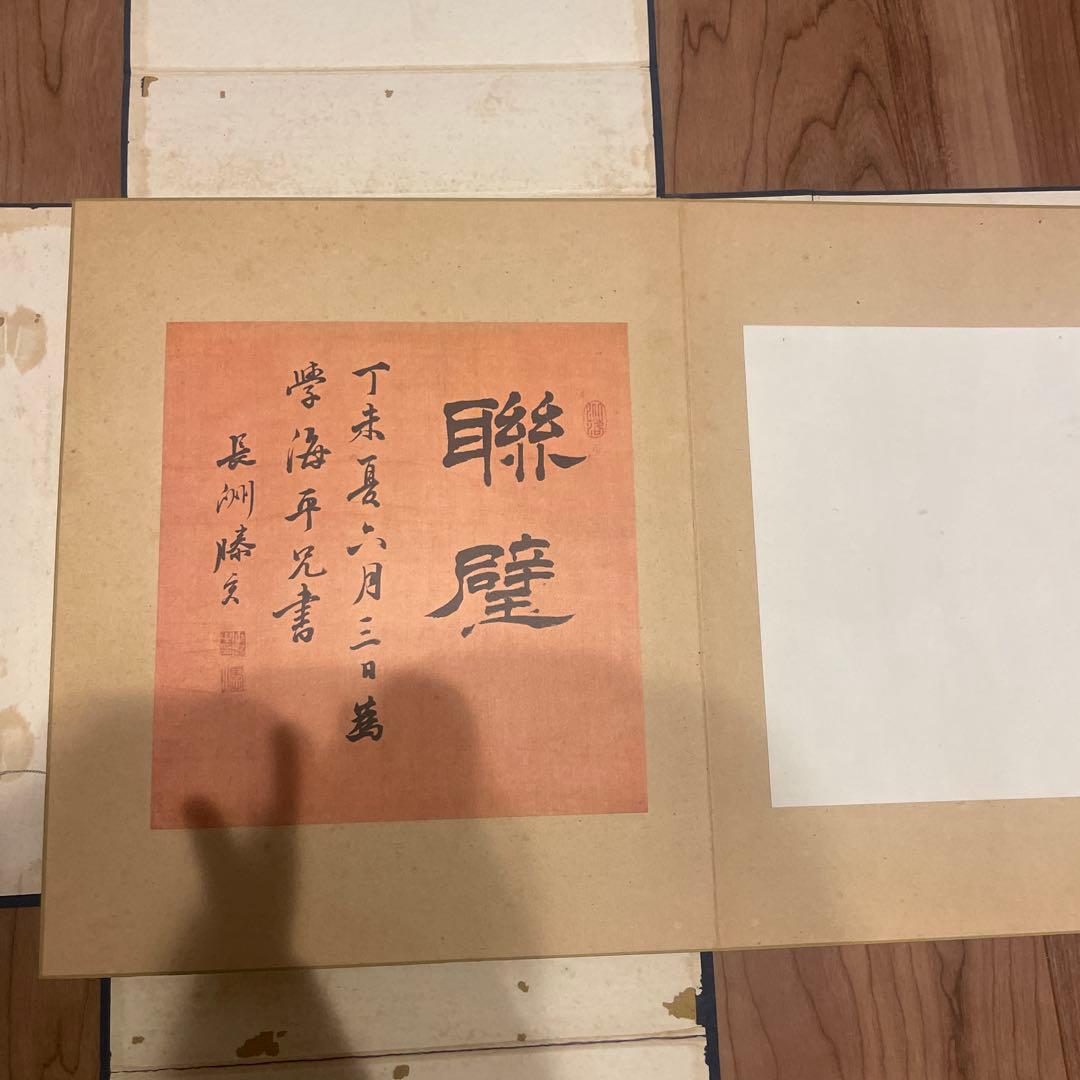 聯璧
丁未夏六月三日為
學海平兄書
長洲